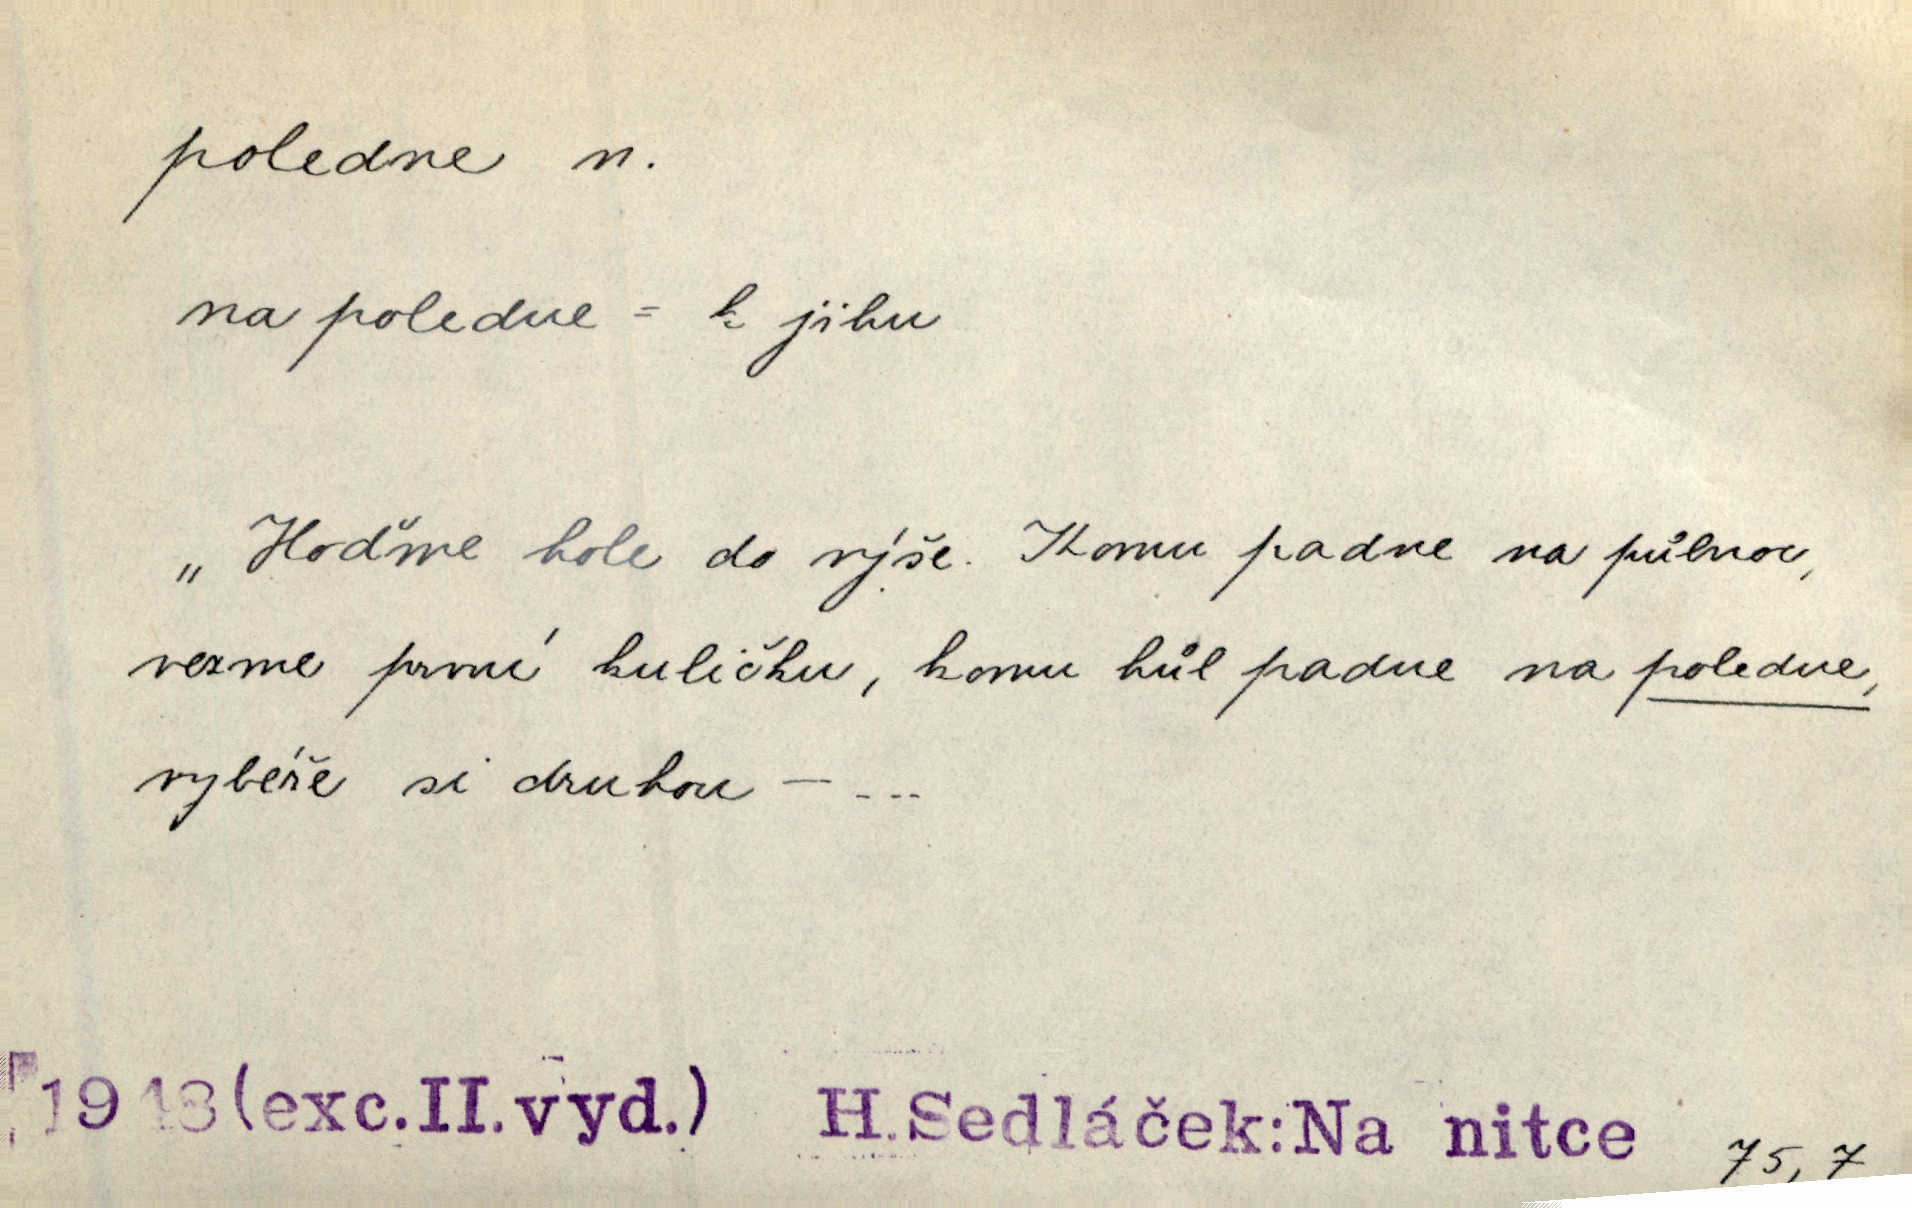 poledne n.
na poledne = k jihu
„Hoďme hole do výše. Komu padne na půlnoc,
vezme první kuličku, komu hůl padne na poledne,
vybéře si druhou – ...
(exc.II.vyd.) H.Sedláček:Na nitce 75, 7